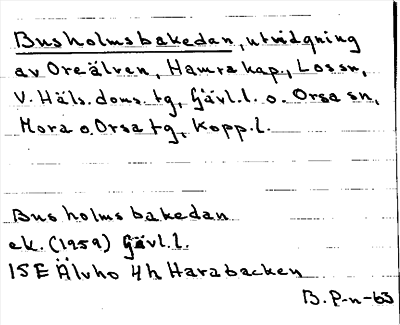 Busholmsbakedan, utvidgning
av Oreälven, Hamra kap., Los sn,
V. Häls. doms. tg, Gävl. l. o. Orsa sn,
Mora o. Orsa tg, Kopp. l.
Busholmsbakedan
ek. (1959) Gävl. l.
15E Älvho 4h Harabacken
B. P-n-63